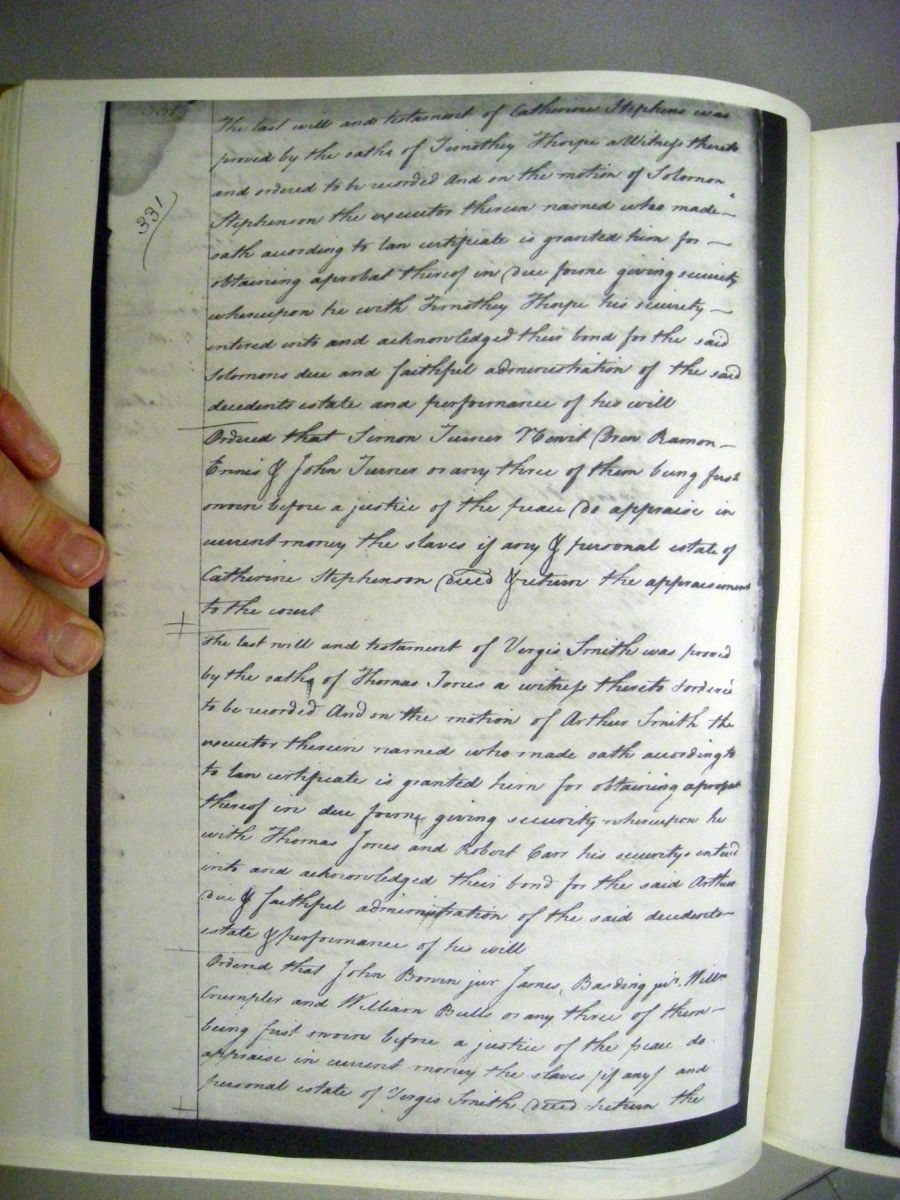 331
The last will and testament of Catherine Stephens was
proved by the oaths of Timothey Thorpe a Witness thereto
and ordered to be recorded And on the motion of Solomon
Stephenson the executor therein named who made
oath acording to law certificate is granted him for
obtaining aprobat thereof in due forme giving security
whereupon he with Timothey Thorpe his security
entered into and acknowledged their bond for the said
Solomons due and faithful administration of the said
decedents estate and performance of his will
Ordered that Simon Turner Drew Ramon
Ennis & John Turner or any three of them being first
sworn before a justice of the peace Do appraise in
current money the slaves if any & personal estate of
Catherine Stephenson Deced & return the appraisement
to the court
the last will and testament of Virgis Smith was proved
by the oaths of Thomas Jones a witness thereto & ordered
to be recorded And on the motion of Arthur Smith the
executor therein named who made oath according to
to law certificate is granted him for obtaining a probat
thereof in due forme giving security whereupon he
with Thomas Jones and Robert Carr his securitys enterd
into and acknowledged their bond for the said Arthurs
Due & faithful administration of the said decedents
estate & performance of his will
Ordered that John Bowin jur James, Barding jur. Willm
Crumpler and William Bulls or any three of them
being first sworn before a justice of the peace do
appraise in current money the slaves (if any) and
personal estate of Virgis Smith Deced & return the